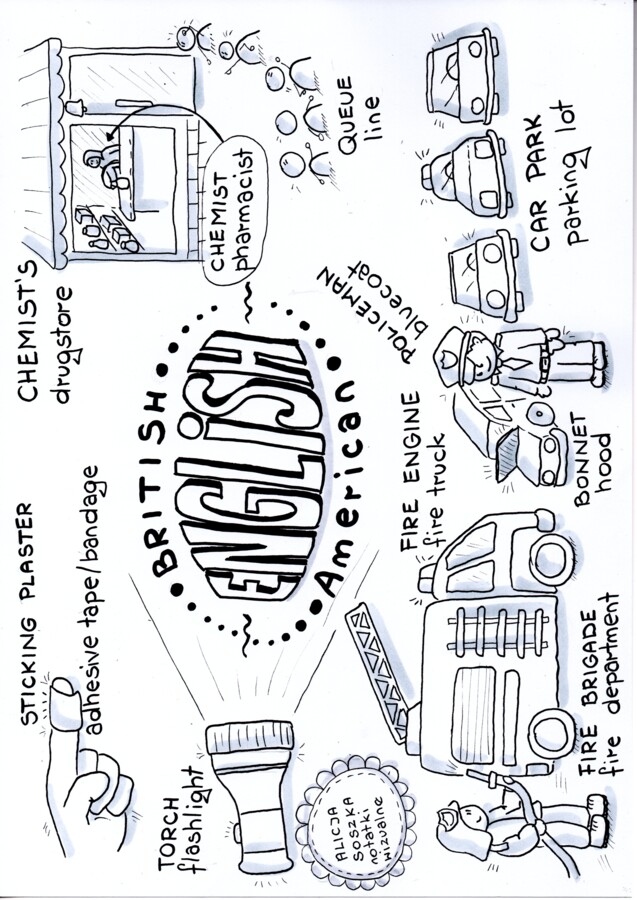 STICKING PLASTER
adhesive tape/bandage
CHEMIST'S
drugstore
CHEMIST
pharmacist
QUEUE
line
BRITISH
ENGLiSH
American
TORCH
flashlight
ALICJA
SOSZKA
notatki
wizualne
FIRE ENGINE
fire truck
POLICEMAN
bluecoat
FIRE BRIGADE
fire department
BONNET
hood
CAR PARK
parking lot